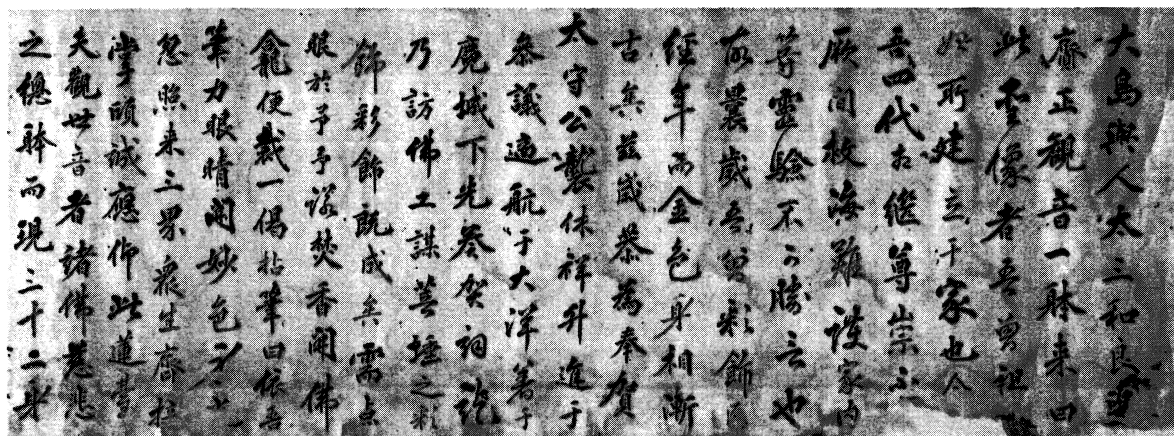 大島與人太三和良當
齋正観音一躰来曰
此霊像者吾曽祖
所建立于家也人
言四代相継尊崇不
厥間救海難護家内
等霊驗不可勝言也
故曩歳吾曽彩飾
經年而金色身相漸
古矣茲歳恭為奉賀
太守公襲休祥升進于
参議適航于大洋著于
麑城下先参賀詞訖
乃訪佛工謀菩埵之彩
飾彩飾既成矣需点
眼於予予諾焚香開佛
龕便裁一偈拈筆曰依吾
筆力眼睛開妙色
忽照来三界衆生齋
掌頤誠應仰此蓮臺
夫觀世音者諸佛慈悲
之總躰而現三十二身